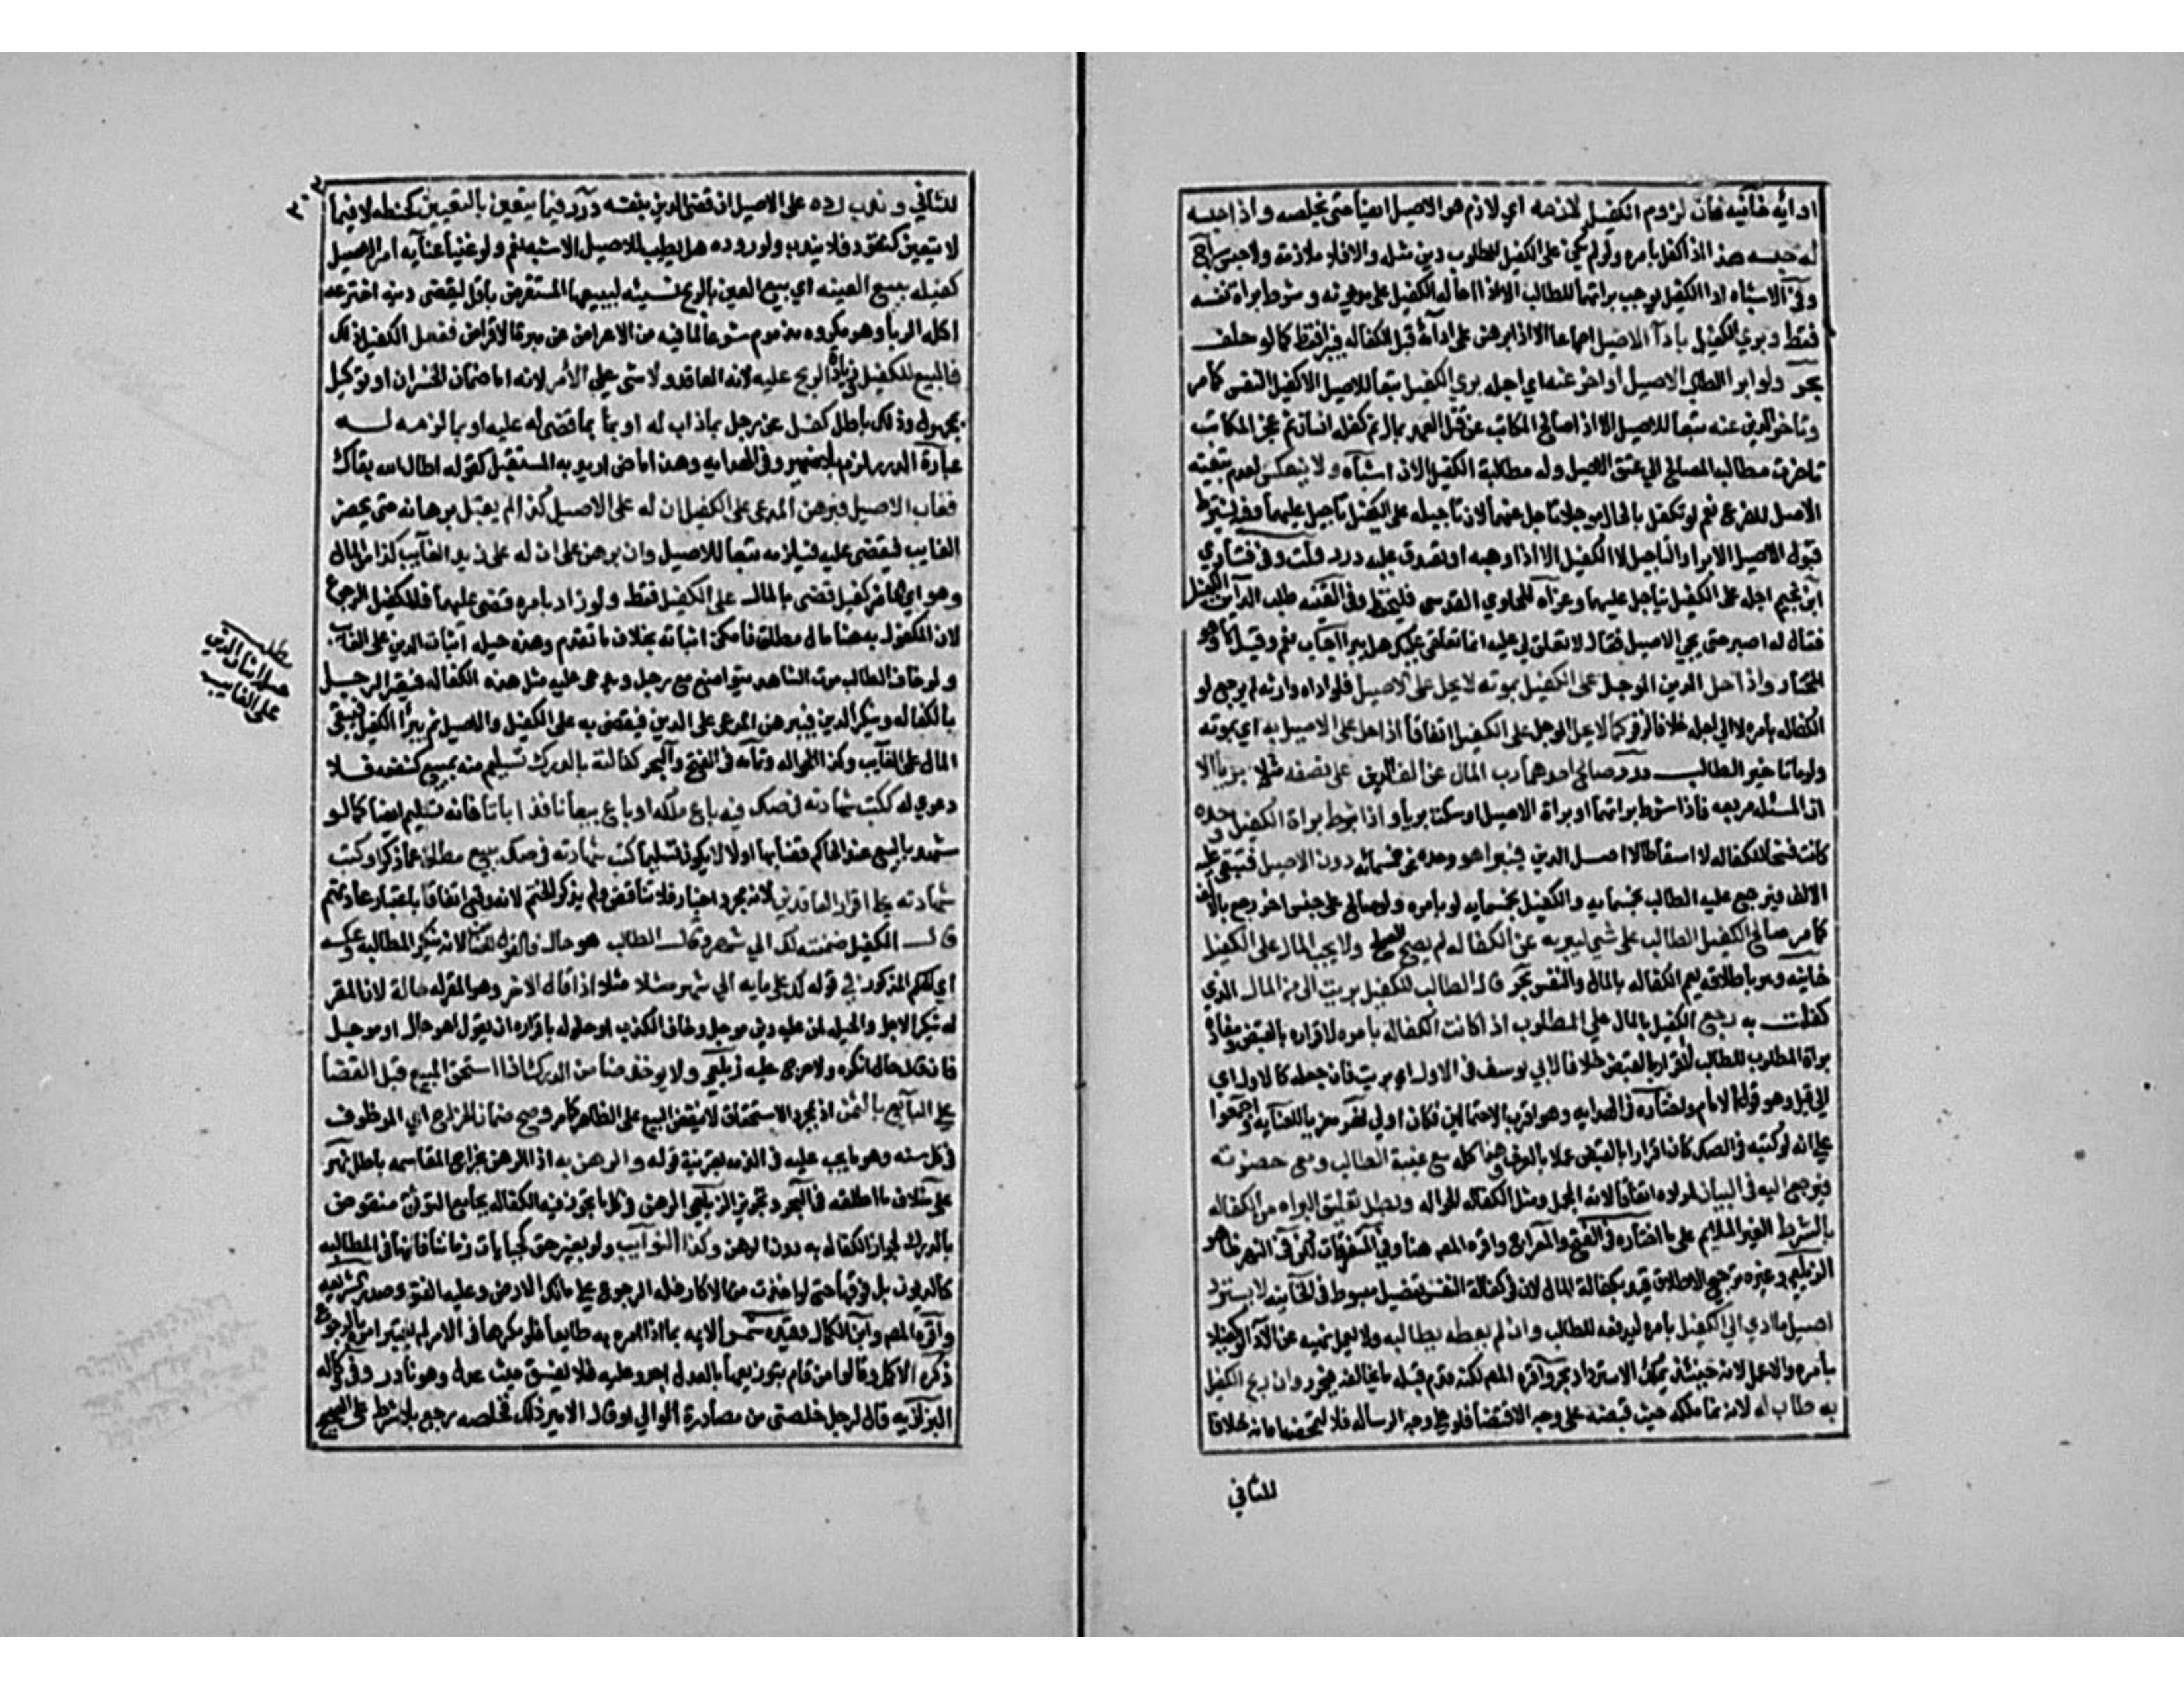 ادائه خانيه فان لزوم الكفيل لازمه اي لازم هو الاصيل ايضا حتى يخلصه واذا حبسه
له حبسه هذا اذا كفل بامره ولم يكن على الكفيل للمطلوب دين مثله والا فلا ملازمة ولا حبس سراج
وفي الاشباه اداء الكفيل يوجب براتهما للطالب الا اذا احاله الكفيل على مديونه وشرط براة نفسه
فقط وبري الكفيل بادآ الاصيل اجماعا الا اذا برهن على ادائه قبل الكفاله فيبرا فقط كما لو حلف
بحر ولو ابرا الطالب الاصيل او اخر عنه اي اجله بري الكفيل تبعا للاصيل الا كفيل النفس كما مر
وتاخر الدين عنه تبعا للاصيل الا اذا صالح المكاتب عن قتل العمد بمال ثم كفله انسان ثم عجز المكاتب
تاخرت مطالبة المصالح الي عتق الاصيل وله مطالبة الكفيل الان اشباه ولا ينعكس لعدم تبعية
الاصل للفرع نعم لو تكفل بالحال موجلا تاجل عنهما لان تاجيله على الكفيل تاجيل عليهما وفيه يشترط
قبول الاصيل الابرا والتاجيل لا الكفيل الا اذا وهبه او تصدق عليه درر قلت وفي فتاوي
ابن نجيم اجله على الكفيل يتاجل عليهما وعزاه للحاوي القدسي فليحفظ وفي القنيه طلب الداين الكفيل
فقال له اصبر حتى يجي الاصيل فقال لا تعلق لي عليه انما تعلقي عليك هل يبرا اجاب نعم وقيل لا وهو
المختار واذا حل الدين الموجل على الكفيل بموته لا يحل على الاصيل فلو اداه وارثه لم يرجع لو
الكفاله بامره الا الي اجله خلافا لزفر كما لا يحل الموجل على الكفيل اتفاقا اذا حل على الاصيل به اي بموته
ولو ماتا خير الطالب درر صالح احدهما رب المال عن الف الدين على نصفه مثلا بريا الا
ان المسئله مربعه فاذا شرط براتهما او براة الاصيل او سكت بريا واذا شرط براة الكفيل وحده
كانت فسخا للكفاله لا اسقاطا لاصل الدين فيبرا هو وحده عن خمسمائه دون الاصيل فتبقى عليه
الالف فيرجع عليه الطالب بخمسمايه والكفيل بخمسمايه لو بامره ولو صالح على جنس اخر رجع بالالف
كما مر صالح الكفيل الطالب على شي ليبريه عن الكفاله لم يصح الصلح ولا يجب المال على الكفيل
خانيه وهو باطلاقه يعم الكفاله بالمال والنفس بحر قال الطالب للكفيل بريت الى من المال الذي
كفلت به رجع الكفيل بالمال علي المطلوب اذا كانت الكفاله بامره لاقراره بالقبض ومفاده
براة المطلوب للطالب لاقراره بالقبض خلافا لابي يوسف في الاول اي بريت فانه جعله كالاول اي
الي قيل وهو قول الامام واختاره في الهدايه وهو اقرب الاحتمالين فكان اولي نهر معزيا للعنايه واجمعوا
علي انه لو كتبه في الصك كان اقرارا بالقبض عملا بالعرف وهذا كله مع غيبة الطالب ومع حضرته
يرجع اليه في البيان لمراده اتفاقا لانه المجمل ومثل الكفاله الحواله وبطل تعليق البراه من الكفاله
بالشرط الغير الملايم على ما اختاره في الفتح والمعراج واقره المص هنا وفي المتفرقات لكن في النهر ظاهر
الزيلعي وغيره ترجيح الاطلاق قيد بكفالة المال لان في كفالة النفس تفصيل مبسوط في الخانيه لا يسترد
اصيل ما ادي الي الكفيل بامره ليدفعه للطالب وان لم يعطه لطالبه ولا يعمل نهيه عن الادا لو كفيلا
بامره والا عمل لانه حينئذ يملك الاسترداد بحر واقره المص لكنه قدم قبله ما يخالفه فيحرر وان ربح الكفيل
به طاب له لانه نما ملكه حيث قبضه على وجه الاقتضا فلو علي وجه الرساله فلا لتمحضه امانه خلافا
للثاني
٣٠٣
للثاني وندب رده على الاصيل ان قضى الدين بنفسه درر فيما يتعين بالتعيين كحنطه لا فيما
لا يتعين كنقود فلا يندب ولو رده هل يطيب للاصيل الاشبه نعم ولو غنيا عنايه امر الاصيل
كفيله ببيع العينه اي بيع العين بالربح نسيئه ليبيعها المستقرض باقل ليقضي دينه اخترعه
اكلة الربا وهو مكروه مذموم شرعا لما فيه من الاعراض عن مبرة الاقراض ففعل الكفيل ذلك
فالمبيع للكفيل وزيادة الربح عليه لانه العاقد ولا شي علي الآمر لانه اما ضمان الخسران او توكيل
بمجهول وذلك باطل كفل عن رجل بما ذاب له او بما قضي له عليه او بما لزمه له
عبارة الدرر لزم بلا ضمير وفي الهدايه وهذا ماض اريد به المستقبل كقوله اطال الله بقاك
فغاب الاصيل فبرهن المدعي على الكفيل ان له على الاصيل كذا لم يقبل برهانه حتى يحضر
الغايب فيقضى عليه فيلزمه تبعا للاصيل وان برهن على ان له على زيد الغايب كذا من المال
وهو اي هذا كفيل قضي بالمال على الكفيل فقط ولو زاد بامره قضى عليهما فللكفيل الرجوع
لان المكفول به هنا مال مطلق فامكن اثباته بخلاف ما تقدم وهذه حيلة اثبات الدين على الغايب
ولو خاف الطالب موت الشاهد يتواضع مع رجل ويدعي عليه مثل هذه الكفاله فيقر الرجل
بالكفاله وينكر الدين فيبرهن المدعي على الدين فيقضى به على الكفيل والاصيل ثم يبرا الكفيل فيبقى
المال على الغايب وكذا الحواله وتمامه في الفتح والبحر كفالته بالدرك تسليم منه بمبيع كشفعه فلا
دعوي له ككتب شهادته في صك فيه باع ملكه او باع بيعا نافذا باتا فانه تسليم ايضا كما لو
شهد بالبيع عند الحاكم قضي بها او لا لا يكون تسليما كتب شهادته في صك بيع مطلق عما ذكر او كتب
شهادته على اقرار العاقدين لانه مجرد اخبار فلا تناقض ولم يذكر الختم لانه وقع اتفاقا باعتبار عادتهم
قال الكفيل ضمنته لك الي شهر وقال الطالب هو حال فالقول للضامن لانه ينكر المطالبه وعكسه
اي الحكم المذكور في قوله لك علي مايه الي شهر مثلا اذا قال الاخر وهو المقر له حالة لان المقر
له ينكر الاجل والحيلة لمن عليه دين موجل وخاف الكذب او حلوله باقراره ان يقول اهو حال او موجل
فان قال حال انكره ولا حرج عليه زيلعي ولا يوخذ ضامن الدرك اذا استحق المبيع قبل القضا
علي البائع بالثمن اذ بمجرد الاستحقاق لا ينتقض البيع على الظاهر كما مر وصح ضمان الخراج اي الموظف
في كل سنه وهو ما يجب عليه في الذمه بقرينة قوله والرهن به اذ الرهن بخراج المقاسمه باطل نهر
على خلاف ما اطلقه في البحر وتجويز الزيلعي الرهن في كل ما تجوز فيه الكفاله بجامع التوثق منقوض
بالدرك لجواز الكفاله به دون الرهن وكذا النوايب ولو بغير حق كجبايات زماننا فانها في المطالبه
كالديون بل فوقها حتى لو اخذت من الاكار فله الرجوع على مالك الارض وعليه الفتوي صدر الشريعه
واقره المص وابن الكمال وقيده شمس الايمه بما اذا امره به طايعا فلو مكرها في الامر لم يعتبر امره بالرجوع
ذكره الاكمل وقالوا من قام بتوزيعها بالعدل اجر وعليه فلا يفسق حيث عدل وهو نادر وفي وكالة
البزازيه قال لرجل خلصني من مصادرة الوالي او قال الاسير ذلك فخلصه رجع بلا شرط على الصحيح
مطلب
حيلة اثبات الدين
على الغايب